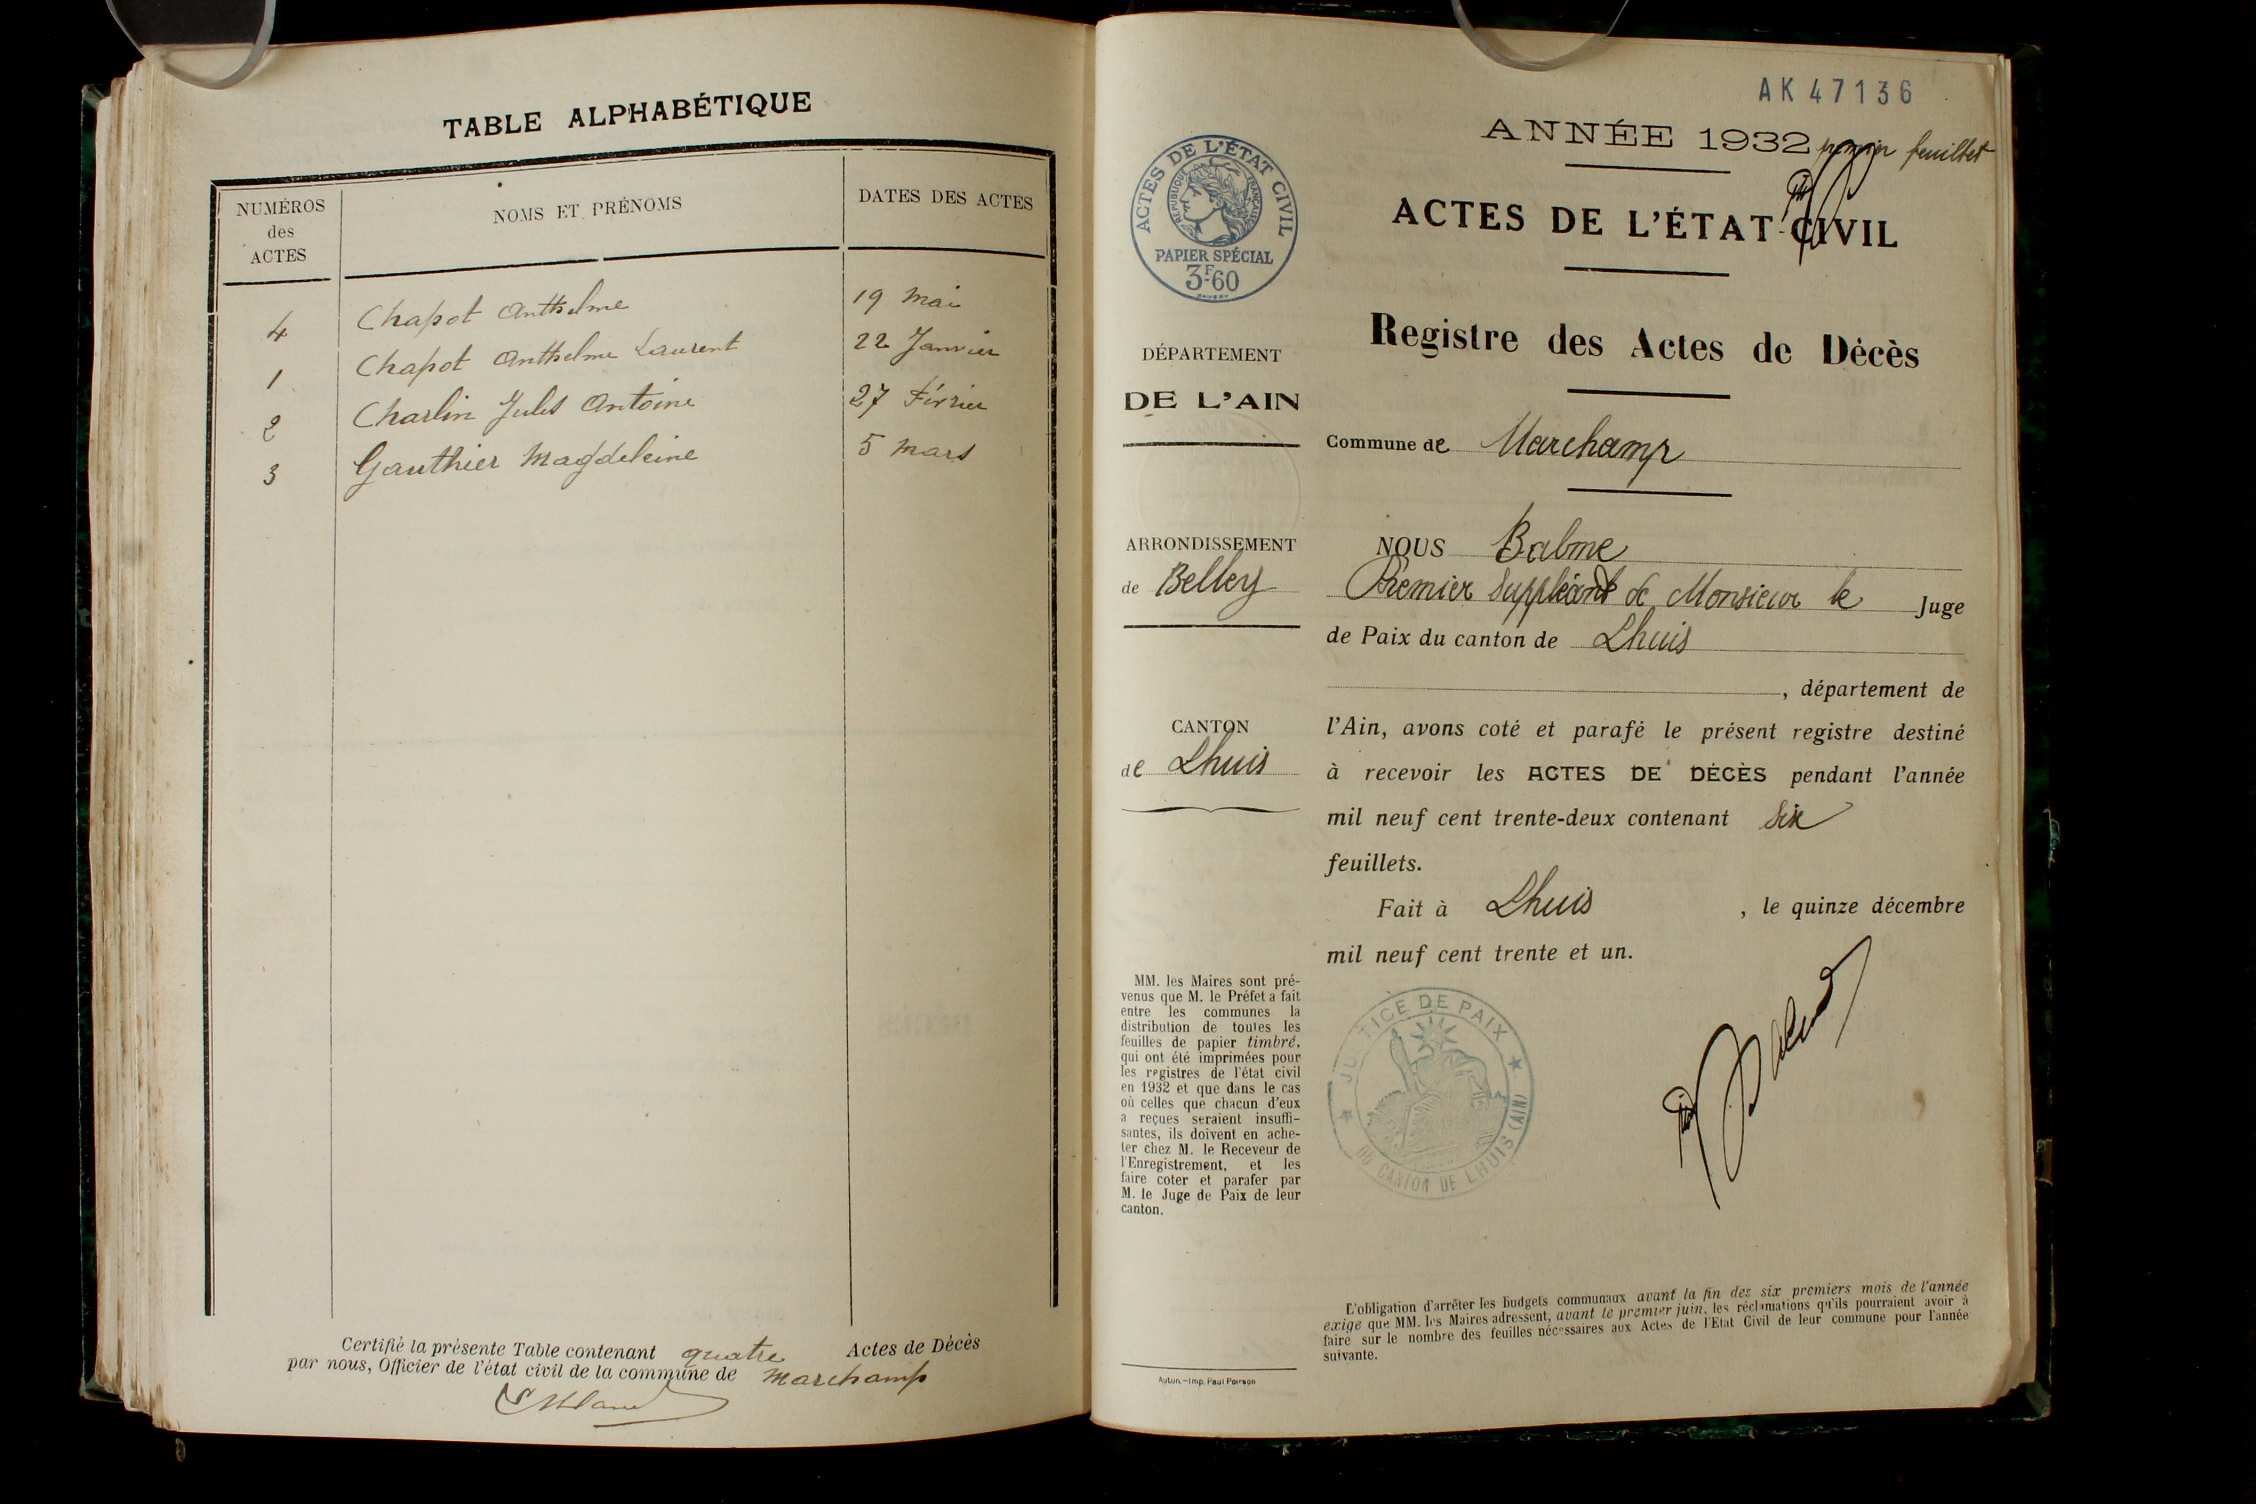 TABLE ALPHABÉTIQUE
NUMÉROS
des
ACTES
NOMS ET PRÉNOMS
DATES DES ACTES
4 Chapot Anthelme 19 Mai
1 Chapot Anthelme Laurent 22 Janvier
2 Charlin Jules Antoine 27 Février
3 Gauthier Magdeleine 5 Mars
Certifié la présente Table contenant quatre Actes de Décès
par nous, Officier de l'état civil de la commune de Marchamp
AK 47136
ANNÉE 1932 premier feuillet
ACTES DE L'ÉTAT CIVIL
RÉPUBLIQUE FRANÇAISE
PAPIER SPÉCIAL
3F60
ACTES DE L'ÉTAT CIVIL
Registre des Actes de Décès
DÉPARTEMENT
DE L'AIN
Commune de Marchamp
ARRONDISSEMENT
de Belley
NOUS Balme
Premier Suppléant de Monsieur le Juge
de Paix du canton de Lhuis
, département de
CANTON
de Lhuis
l'Ain, avons coté et parafé le présent registre destiné
à recevoir les ACTES DE DÉCÈS pendant l'année
mil neuf cent trente-deux contenant six
feuillets.
Fait à Lhuis , le quinze décembre
mil neuf cent trente et un.
MM. les Maires sont pré-
venus que M. le Préfet a fait
entre les communes la
distribution de toutes les
feuilles de papier timbré,
qui ont été imprimées pour
les registres de l'état civil
en 1932 et que dans le cas
où celles que chacun d'eux
a reçues seraient insuffi-
santes, ils doivent en ache-
ter chez M. le Receveur de
l'Enregistrement, et les
faire coter et parafer par
M. le Juge de Paix de leur
canton.
JUSTICE DE PAIX
DU CANTON DE LHUIS (AIN)
Balme
L'obligation d'arrêter les budgets communaux avant la fin des six premiers mois de l'année
exige que MM. les Maires adressent, avant le premier juin, les réclamations qu'ils pourraient avoir à
faire sur le nombre des feuilles nécessaires aux Actes de l'Etat Civil de leur commune pour l'année
suivante.
Autun.—Imp. Paul Poirson